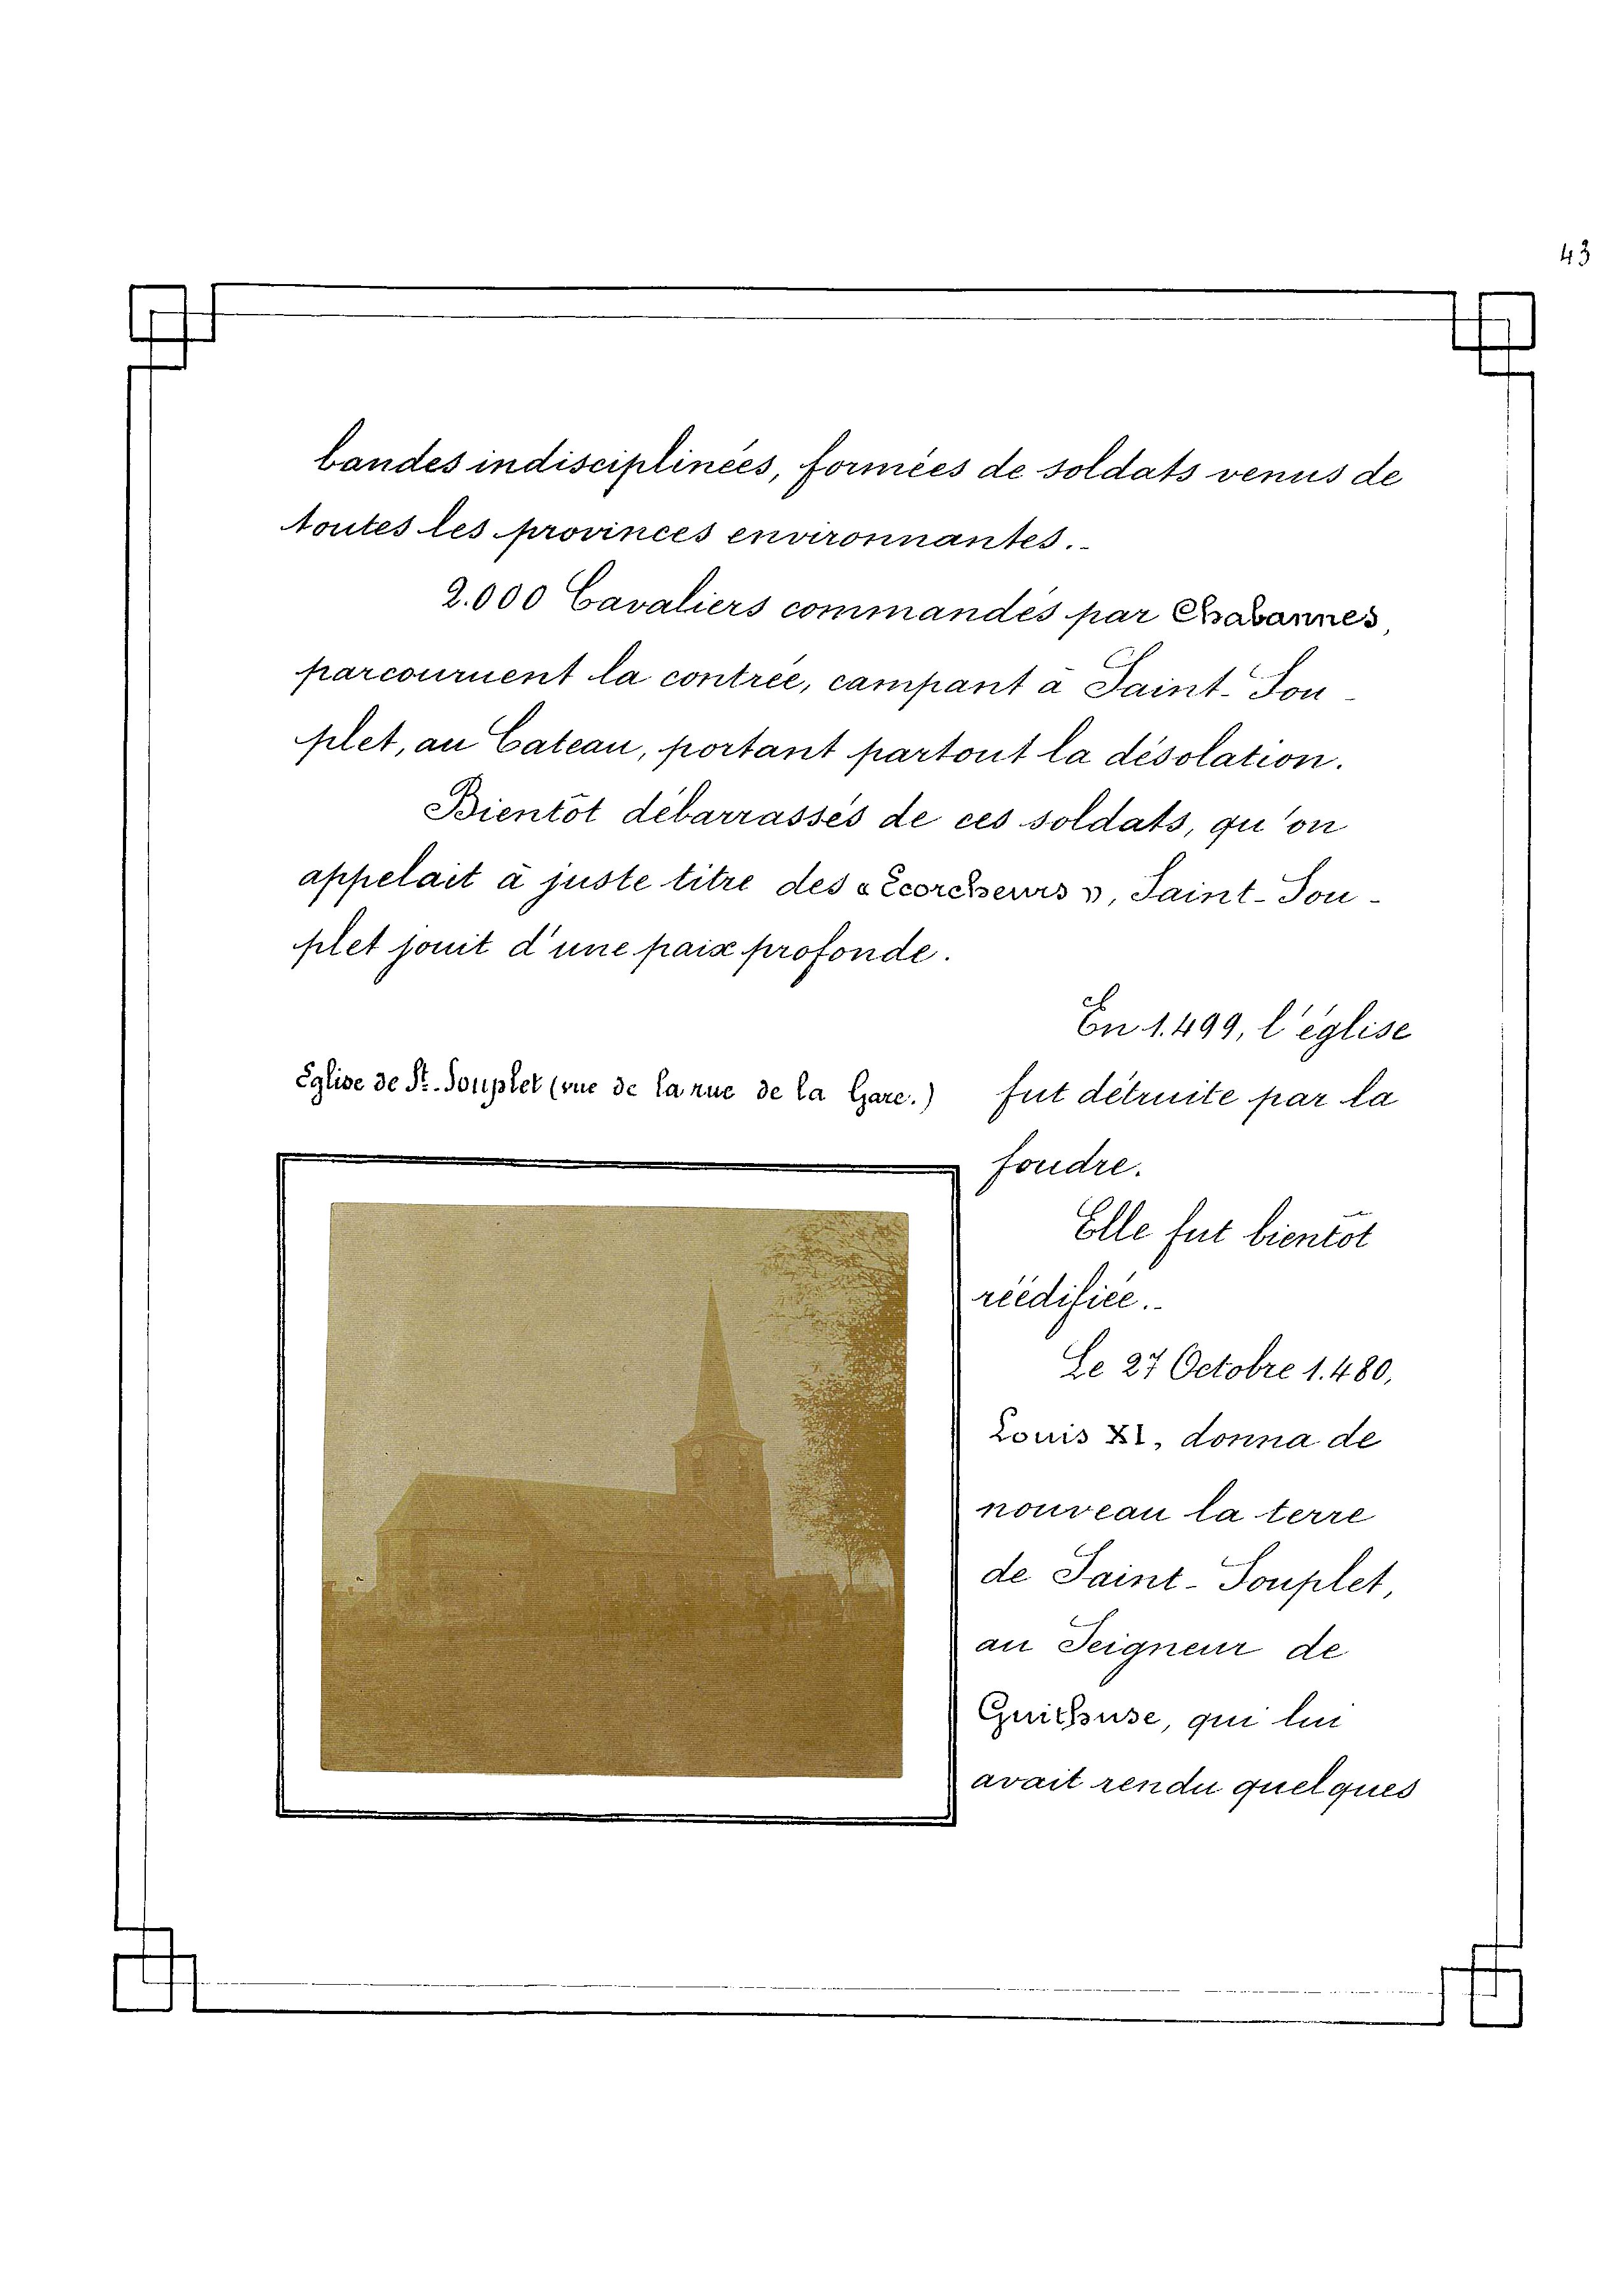 43
bandes indisciplinées, formées de soldats venus de
toutes les provinces environnantes._
2.000 Cavaliers commandés par Chabannes,
parcouruent la contrée, campant à Saint-Sou-
plet, au Cateau, portant partout la désolation.
Bientôt débarrassés de ces soldats, qu'on
appelait à juste titre des « Écorcheurs », Saint-Sou-
plet jouit d'une paix profonde.
En 1.499, l'église
Eglise de St. Souplet (vue de la rue de la Gare.)
fut détruite par la
foudre.
Elle fut bientôt
réédifiée._
Le 27 Octobre 1.480,
Louis XI, donna de
nouveau la terre
de Saint-Souplet,
au Seigneur de
Guithuse, qui lui
avait rendu quelques